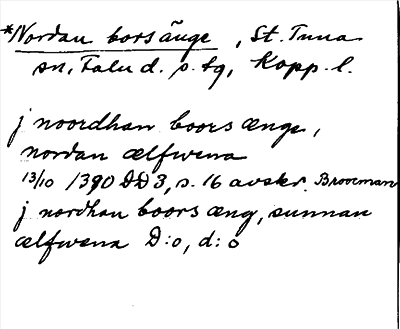 *Nordan borsänge, St. Tuna
sn, Falu d. s. tg, Kopp. l.
j noordhan boors ænge,
nordan ælfwena
13/10 1390 DD 3, s. 16 avskr. Brooman
j nordhan boors æng, sunnan
ælfwena D:o, d:o